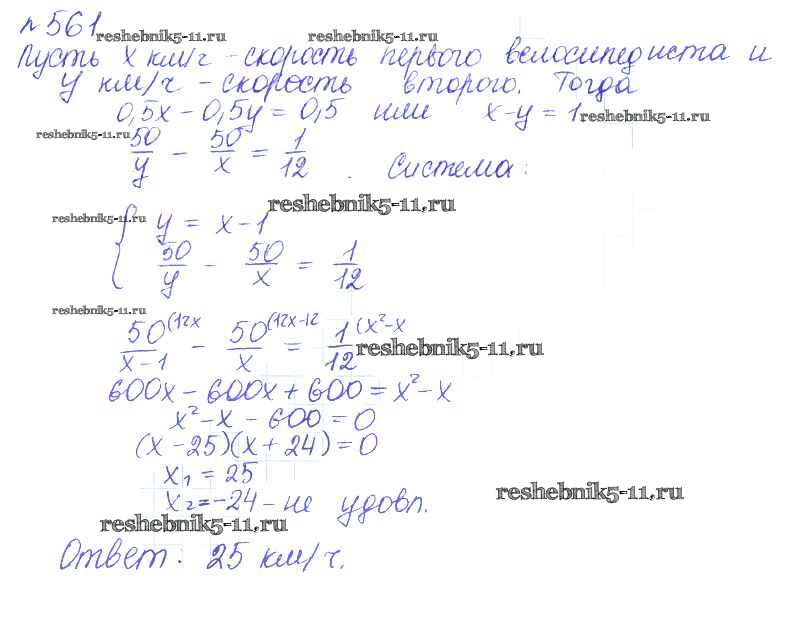 №561 reshebnik5-11.ru reshebnik5-11.ru
Пусть x км/ч - скорость первого велосипедиста и
y км/ч - скорость второго. Тогда
0,5x - 0,5y = 0,5 или x-y = 1 reshebnik5-11.ru
reshebnik5-11.ru
50/y - 50/x = 1/12 . Система:
reshebnik5-11.ru
reshebnik5-11.ru
{ y = x-1
50/y - 50/x = 1/12
reshebnik5-11.ru
50/(x-1) (12x - 50/x (12x-12 = 1/12 (x²-x
reshebnik5-11.ru
600x - 600x + 600 = x² - x
x² - x - 600 = 0
(x - 25)(x + 24) = 0
x₁ = 25
x₂ = -24 - не удовл.
reshebnik5-11.ru
reshebnik5-11.ru
Ответ. 25 км/ч.